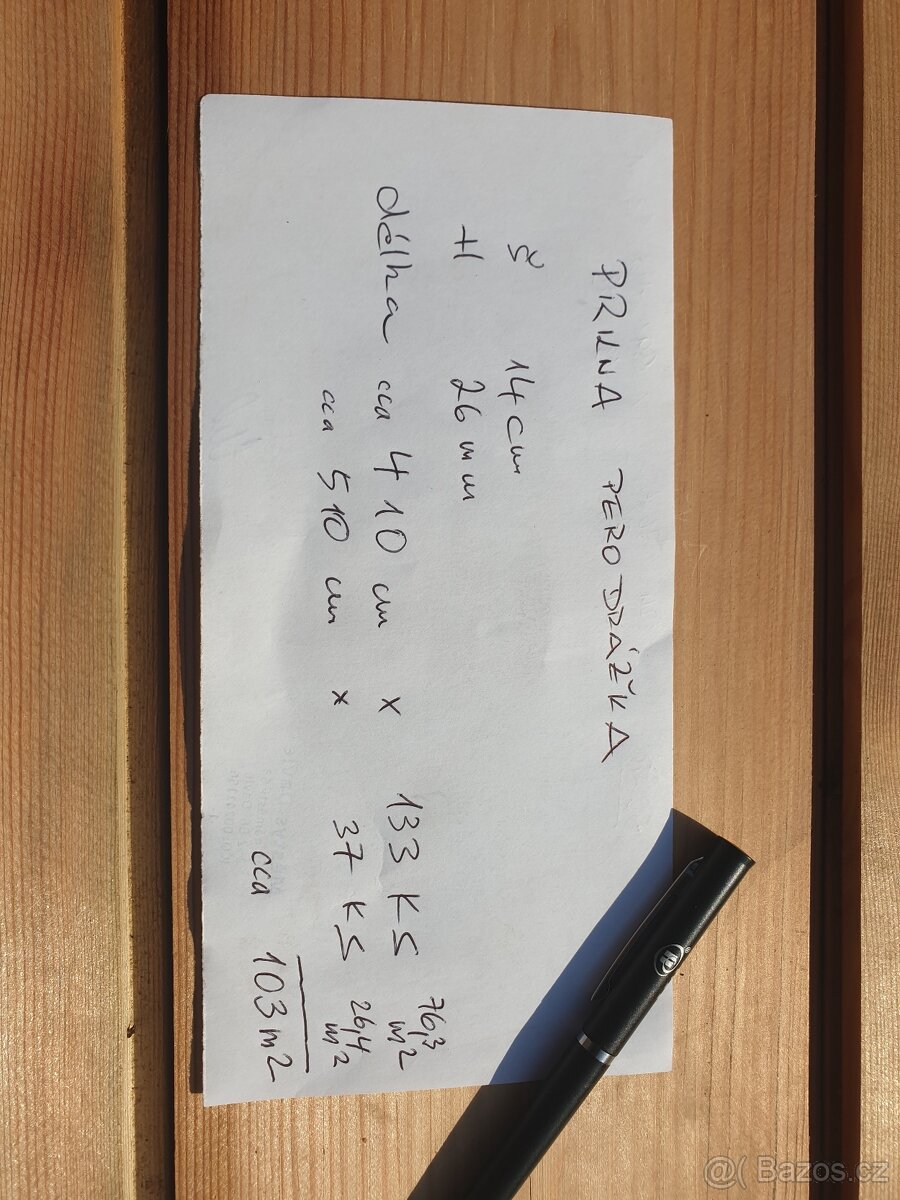 PRKNA PERODRÁŽKA
Š 14 cm
H 26 mm
délka cca 410 cm x 133 KS 76,3 m2
cca 510 cm x 37 KS 26,4 m2
cca 103 m2
@( Bazos.cz